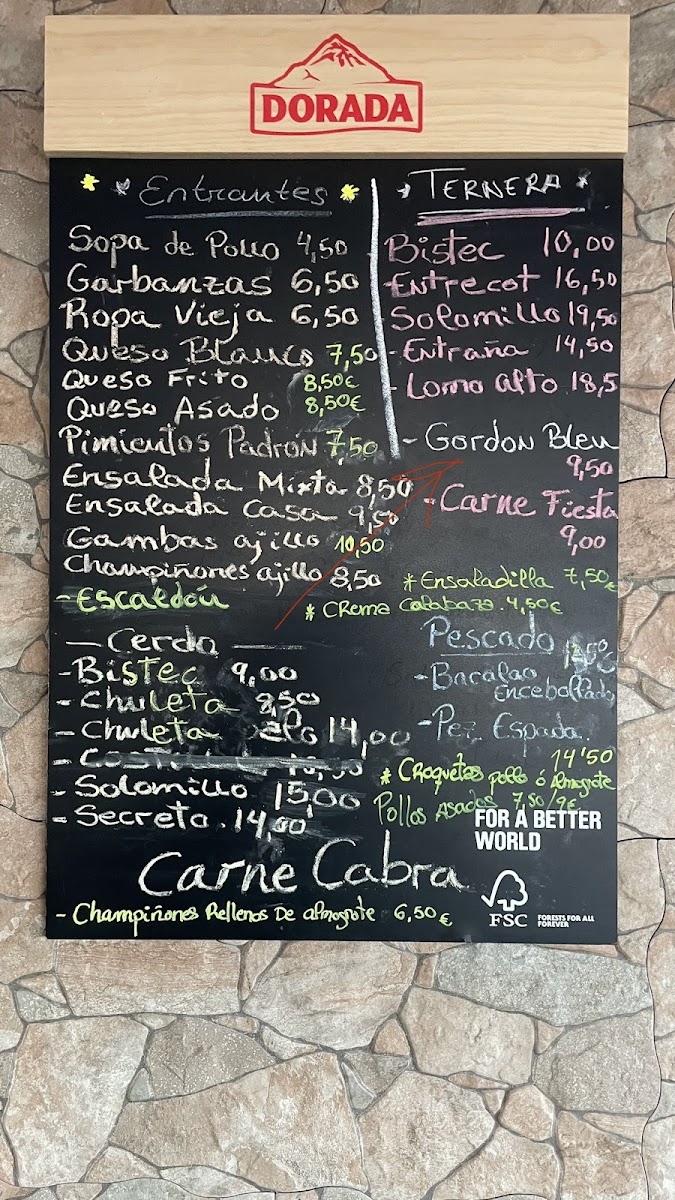 DORADA
Entrantes
Sopa de Pollo 4,50
Garbanzas 6,50
Ropa Vieja 6,50
Queso Blanco 7,50
Queso Frito 8,50€
Queso Asado 8,50€
Pimientos Padrón 7,50
Ensalada Mixta 8,50
Ensalada Casa 9,50
Gambas ajillo 10,50
Champiñones ajillo 8,50
- Escaldón
TERNERA
Bistec 10,00
- Entrecot 16,50
Solomillo 19,50
- Entraña 14,50
- Lomo alto 18,5
- Gordon Bleu
9,50
- Carne Fiesta
9,00
* Ensaladilla 7,50€
* Crema Calabaza 4,50€
— Cerdo —
- Bistec 9,00
- Chuleta 8,50
- Chuleta 14,00
- Solomillo 15,00
- Secreto 14,00
Pescado
- Bacalao
Encebollado
- Pez Espada
14'50
* Croquetas pollo ó Almogrote
Pollos Asados 7,50/9€
Carne Cabra
- Champiñones Rellenos De almogrote 6,50€
FOR A BETTER
WORLD
FSC
FORESTS FOR ALL
FOREVER